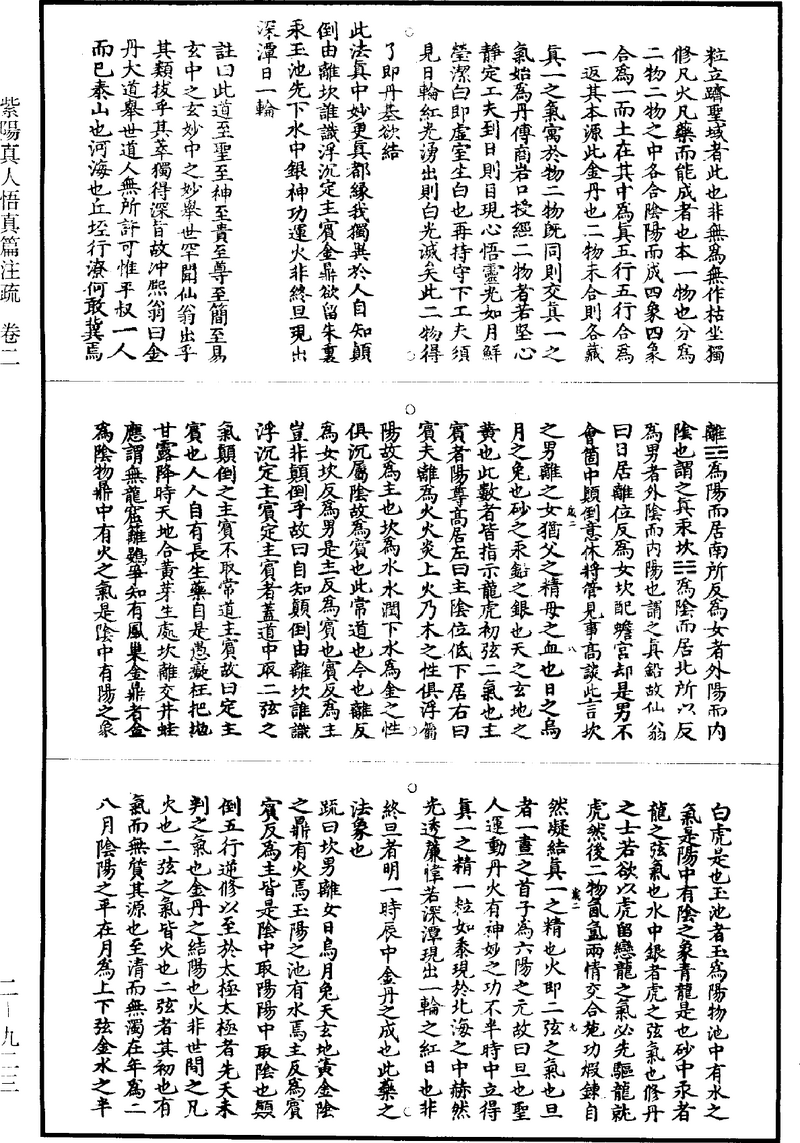 粒立躋聖域者此也非無為無作枯坐獨
修凡火凡藥而能成者也本一物也分為
二物二物之中各合陰陽而成四象四象
合為一而土在其中為真五行五行合為
一返其本源此金丹也二物未合則各藏
真一之氣寓於物二物既同則交真一之
氣始為丹傳商岩口授經二物者若堅心
靜定工夫到日則目現心悟靈光如月鮮
瑩潔白即虛室生白也再持守下工夫須
見日輪紅光湧出則白光滅矣此二物得
了即丹基欲結
此法真中妙更真都緣我獨異於人自知顛
倒由離坎誰識浮沉定主賓金鼎欲留朱裏
汞玉池先下水中銀神功運火非終旦現出
深潭日一輪
註曰此道至聖至神至貴至尊至簡至易
玄中之玄妙中之妙舉世罕聞仙翁出乎
其類拔乎其萃獨得深旨故沖熙翁曰金
丹大道舉世道人無所許可惟平叔一人
而已泰山也河海也丘垤行潦何敢冀焉
離☲為陽而居南所反為女者外陽而內
陰也謂之真汞坎☵為陰而居北所以反
為男者外陰而內陽也謂之真鉛故仙翁
曰日居離位反為女坎配蟾宮却是男不
會箇中顛倒意休將管見事高談此言坎
之男離之女猶父之精母之血也日之烏
月之兔也砂之汞鉛之銀也天之玄地之
黃也此數者皆指示龍虎初弦二氣也主
賓者陽尊高居左曰主陰位低下居右曰
賓夫離為火火炎上火乃木之性俱浮屬
陽故為主也坎為水水潤下水為金之性
俱沉屬陰故為賓也此常道也今也離反
為女坎反為男是主反為賓也賓反為主
豈非顛倒乎故曰自知顛倒由離坎誰識
浮沉定主賓定主賓者蓋道中取二弦之
氣顛倒之主賓不取常道主賓故曰定主
賓也人人自有長生藥自是愚癡枉把拋
甘露降時天地合黃芽生處坎離交井蛙
應謂無龍窟籬鷃爭知有鳳巢金鼎者金
為陰物鼎中有火之氣是陰中有陽之象
白虎是也玉池者玉為陽物池中有水之
氣是陽中有陰之象青龍是也砂中汞者
龍之弦氣也水中銀者虎之弦氣也修丹
之士若欲以虎留戀龍之氣必先驅龍就
虎然後二物氤氳兩情交合施功煆鍊自
然凝結真一之精也火即二弦之氣也旦
者一晝之首子為六陽之元故曰旦也聖
人運動丹火有神妙之功不半時中立得
真一之精一粒如黍現於北海之中赫然
光透簾幃若深潭現出一輪之紅日也非
終旦者明一時辰中金丹之成也此藥之
法象也
疏曰坎男離女日烏月兔天玄地黃金陰
之鼎有火焉玉陽之池有水焉主反為賓
賓反為主皆是陰中取陽陽中取陰也顛
倒五行逆修以至於太極太極者先天未
判之氣也金丹之結陽也火非世間之凡
火也二弦之氣皆火也二弦者其初也有
氣而無質其源也至清而無濁在年為二
八月陰陽之平在月為上下弦金水之半
紫陽真人悟真篇注疏 卷二
二—九二三